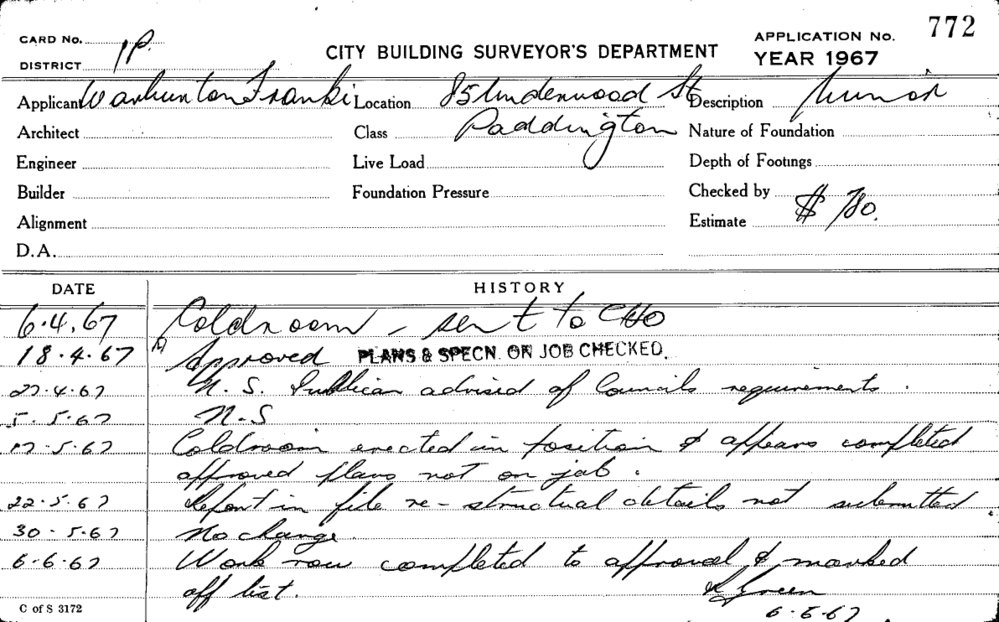 772
CARD No. 1P.
DISTRICT
CITY BUILDING SURVEYOR'S DEPARTMENT
APPLICATION No.
YEAR 1967
Applicant Warburton Franki Location 85 Underwood St Description Minor
Architect Class Paddington Nature of Foundation
Engineer Live Load Depth of Footings
Builder Foundation Pressure Checked by
Alignment Estimate $ 780.
D.A.
DATE HISTORY
6.4.67 Coldroom - sent to CHO
18.4.67 Approved PLANS & SPECN. ON JOB CHECKED.
27.4.67 N.S. Publican advised of Councils requirements.
5.5.67 N.S
17.5.67 Coldroom erected in position & appears completed
approved plans not on job.
22.5.67 Report in file re-structual details not submitted
30.5.67 No change.
6.6.67 Work now completed to approval & marked
off list. Green
C of S 3172 6.6.67